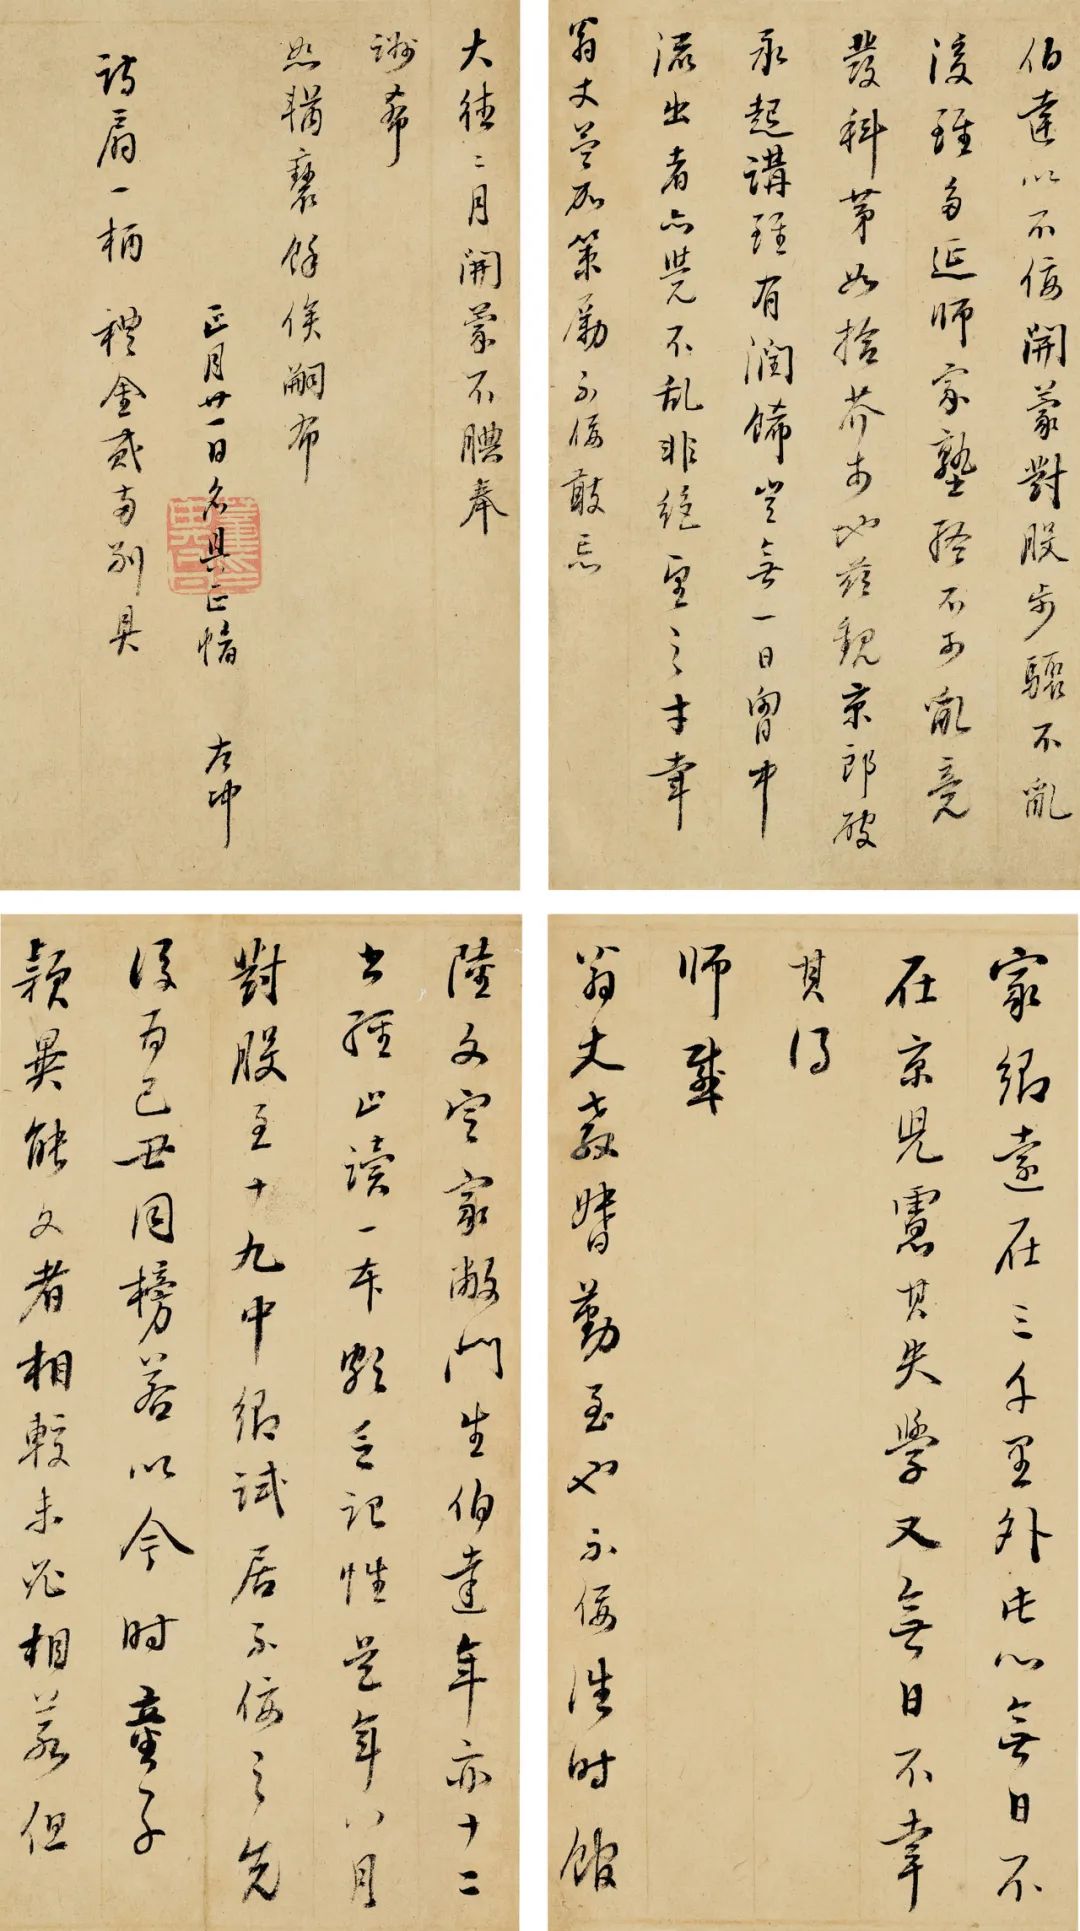 家鄉遠在三千里外此心無日不
在京兒慮其失學又無日不幸
其得
師
翁丈教督勤至也不佞往時館
陸文定家敝門生伯達年亦十二
書經止讀一本頗乏記性是年八月
對股至十九中鄉試居不佞之先
後為己丑同榜若以今時童子
穎異能文者相較未必相若但
伯達以不佞開蒙對股步驟不亂
後雖多延師家塾終不可亂竟
發科第如拾芥地茲觀京郎破
承起講雖有潤飾豈無一日胸中
流出者亦覺不亂非絕塵之才幸
翁丈益加策勵不佞敢忘
大德二月開蒙不腆奉
謝希
恕猶褻餘俟嗣布
正月廿一日名具正幅 左冲
詩扇一柄 禮金貳兩別具